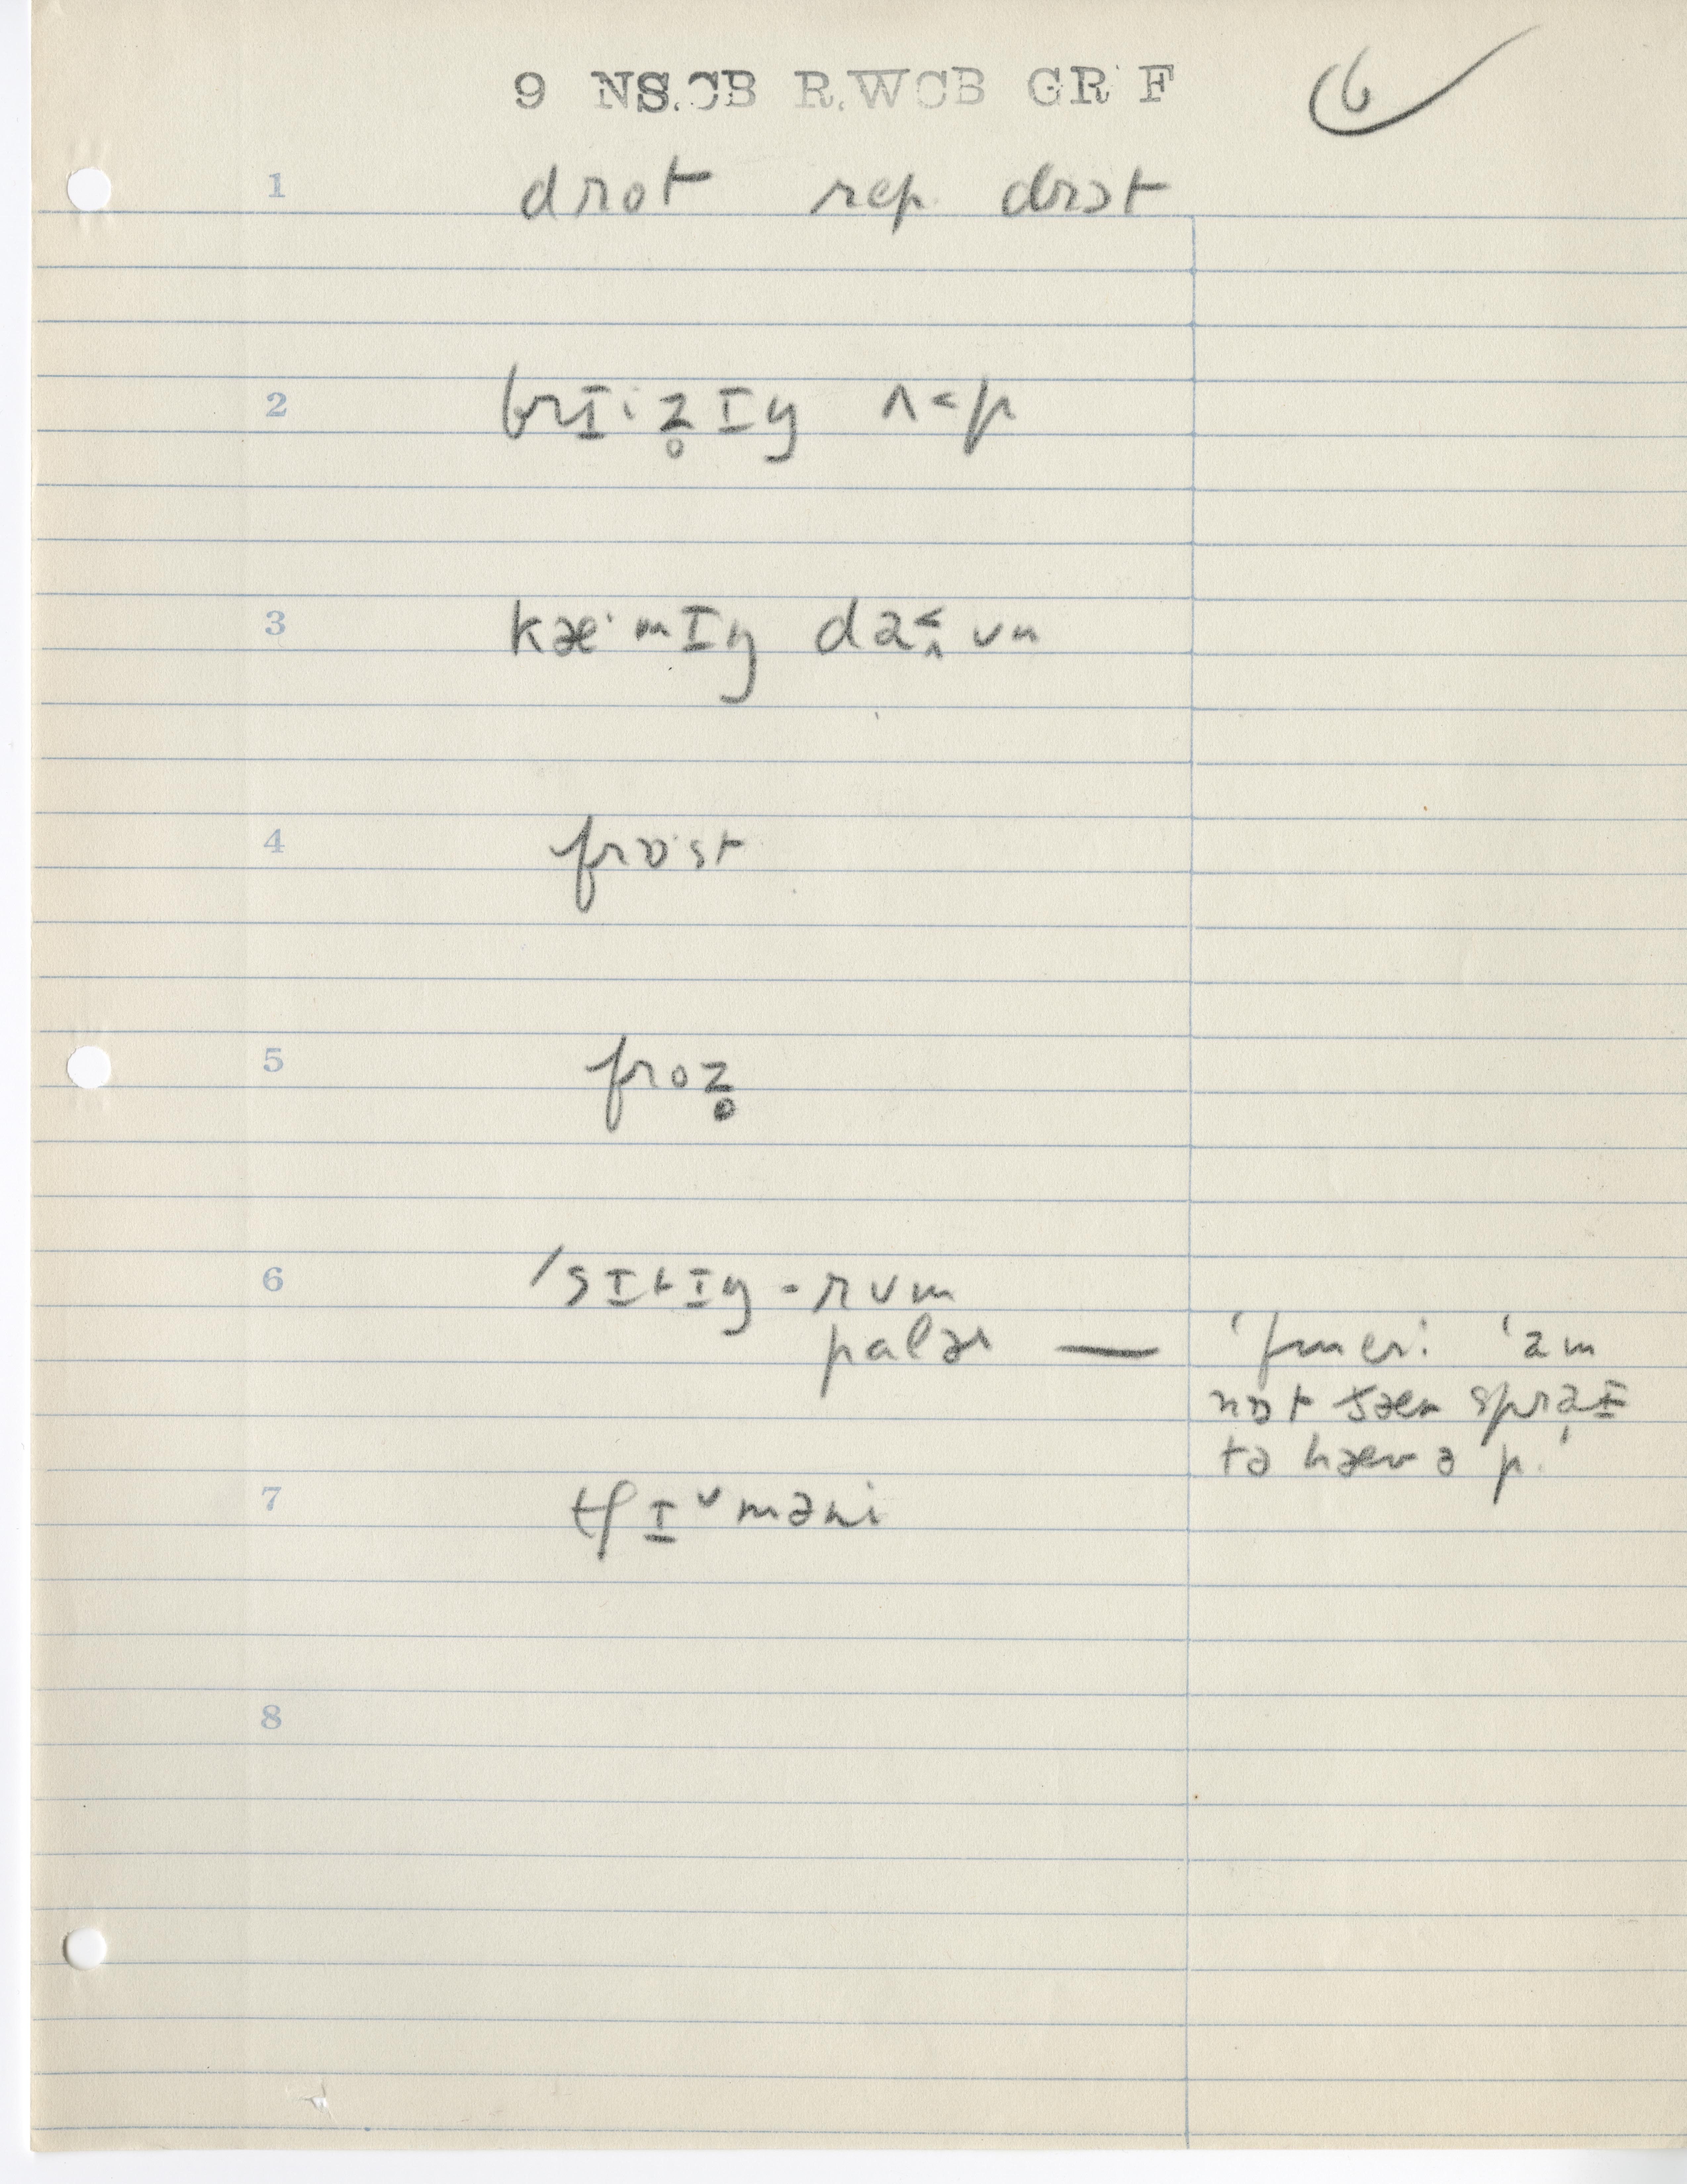 9 NS.CB R.WCB GR F 6
1 drot rep. drɔt
2 brɪ·z̥ɪŋ ʌ<p
3 kæ·mɪŋ daʊn
4 frɒ·st
5 froz̥
6 ˈsɪtɪŋ-rʊm
palər —
nɒt
tə hæv ə p.'
7 tʃɪ˅məni
8